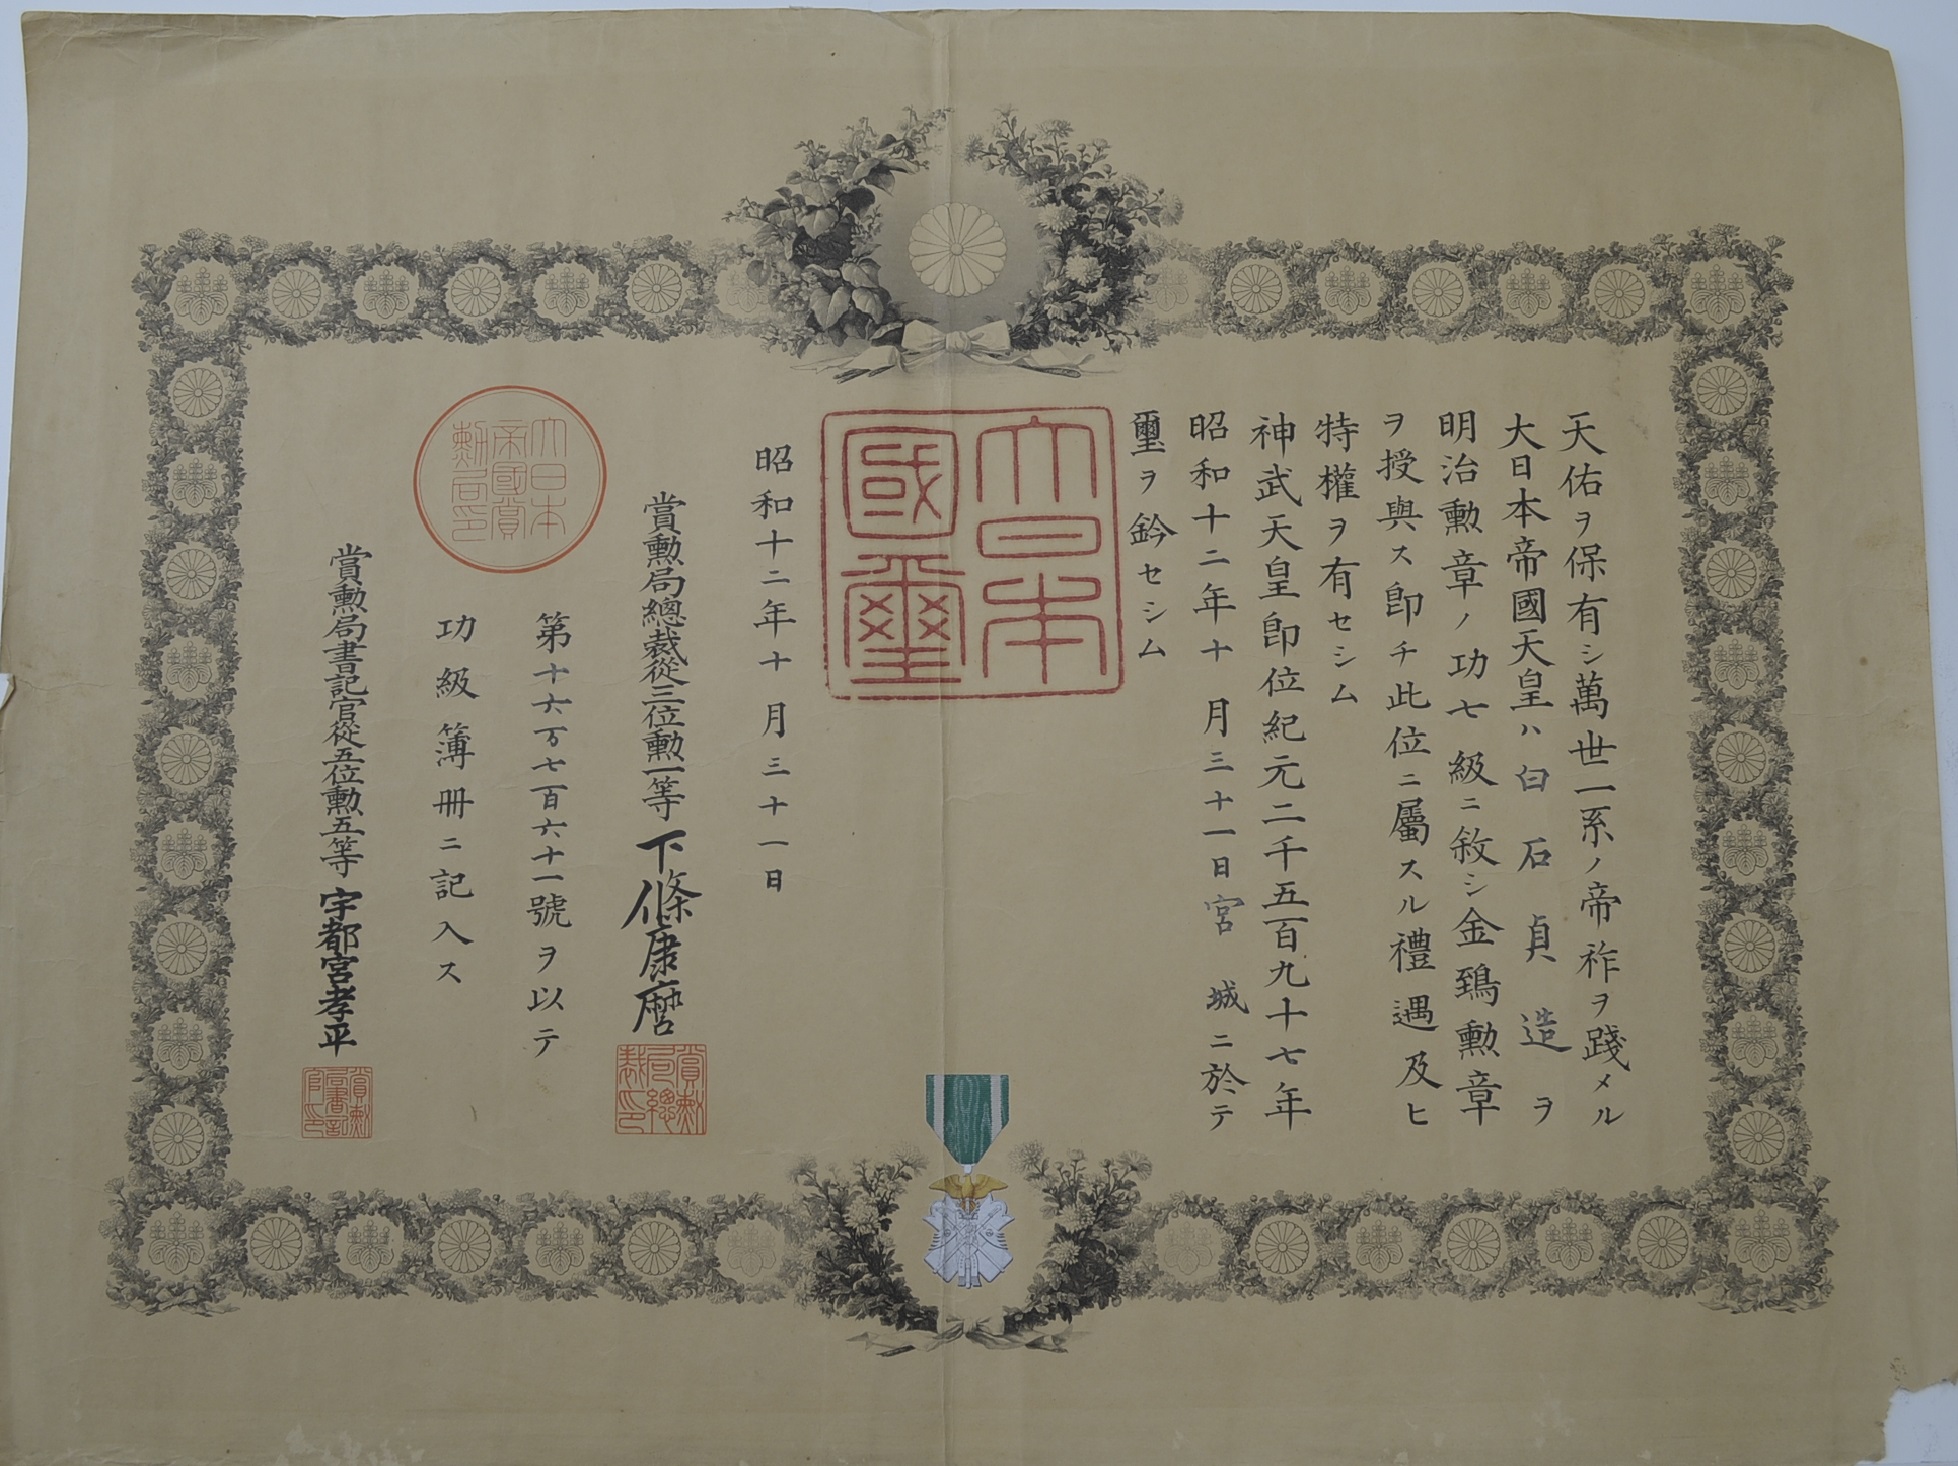 天佑ヲ保有シ萬世一系ノ帝祚ヲ踐メル
大日本帝國天皇ハ白石貞造ヲ
明治勲章ノ功七級ニ敘シ金鵄勲章
ヲ授與ス卽チ此位ニ屬スル禮遇及ヒ
特權ヲ有セシム
神武天皇卽位紀元二千五百九十七年
昭和十二年十月三十一日宮城ニ於テ
璽ヲ鈐セシム
大日本
國璽
昭和十二年十月三十一日
賞勲局總裁從三位勲一等下條康麿
賞勲
局總
裁印
第十六万七百六十一號ヲ以テ
功級簿冊ニ記入ス
大日本
帝國賞
勲局印
賞勲局書記官從五位勲五等宇都宮孝平
賞勲
局書記
官印